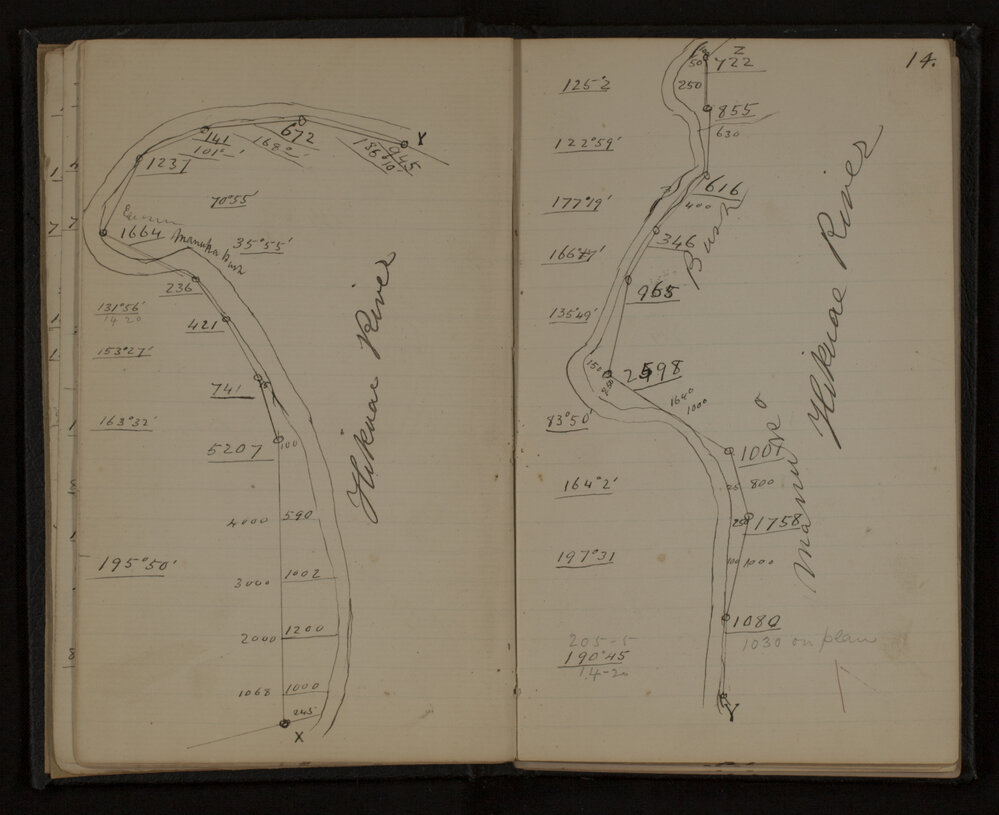 Y
141
101°-'
672
168°-'
945
136°10'
1237
70°55
1664
Manuka Bush
35°55'
236
131°56'
14-20
421
153°27'
741
163°32'
5207
100
Hikuae River
4000 590
195°50'
3000 1002
2000 1200
1068 1000
245
X
14.
Z
50 722
125°2
250
855
630
122°59'
616
177°19'
400
Bush
346
166°47'
965
135°49'
150
2598
250
1640
1000
83°50'
Hikuae River
100
164°2'
25 800
250 1758
197°31
100 1000
1080
1030 on plan
205-5
190°45
14-20
Y